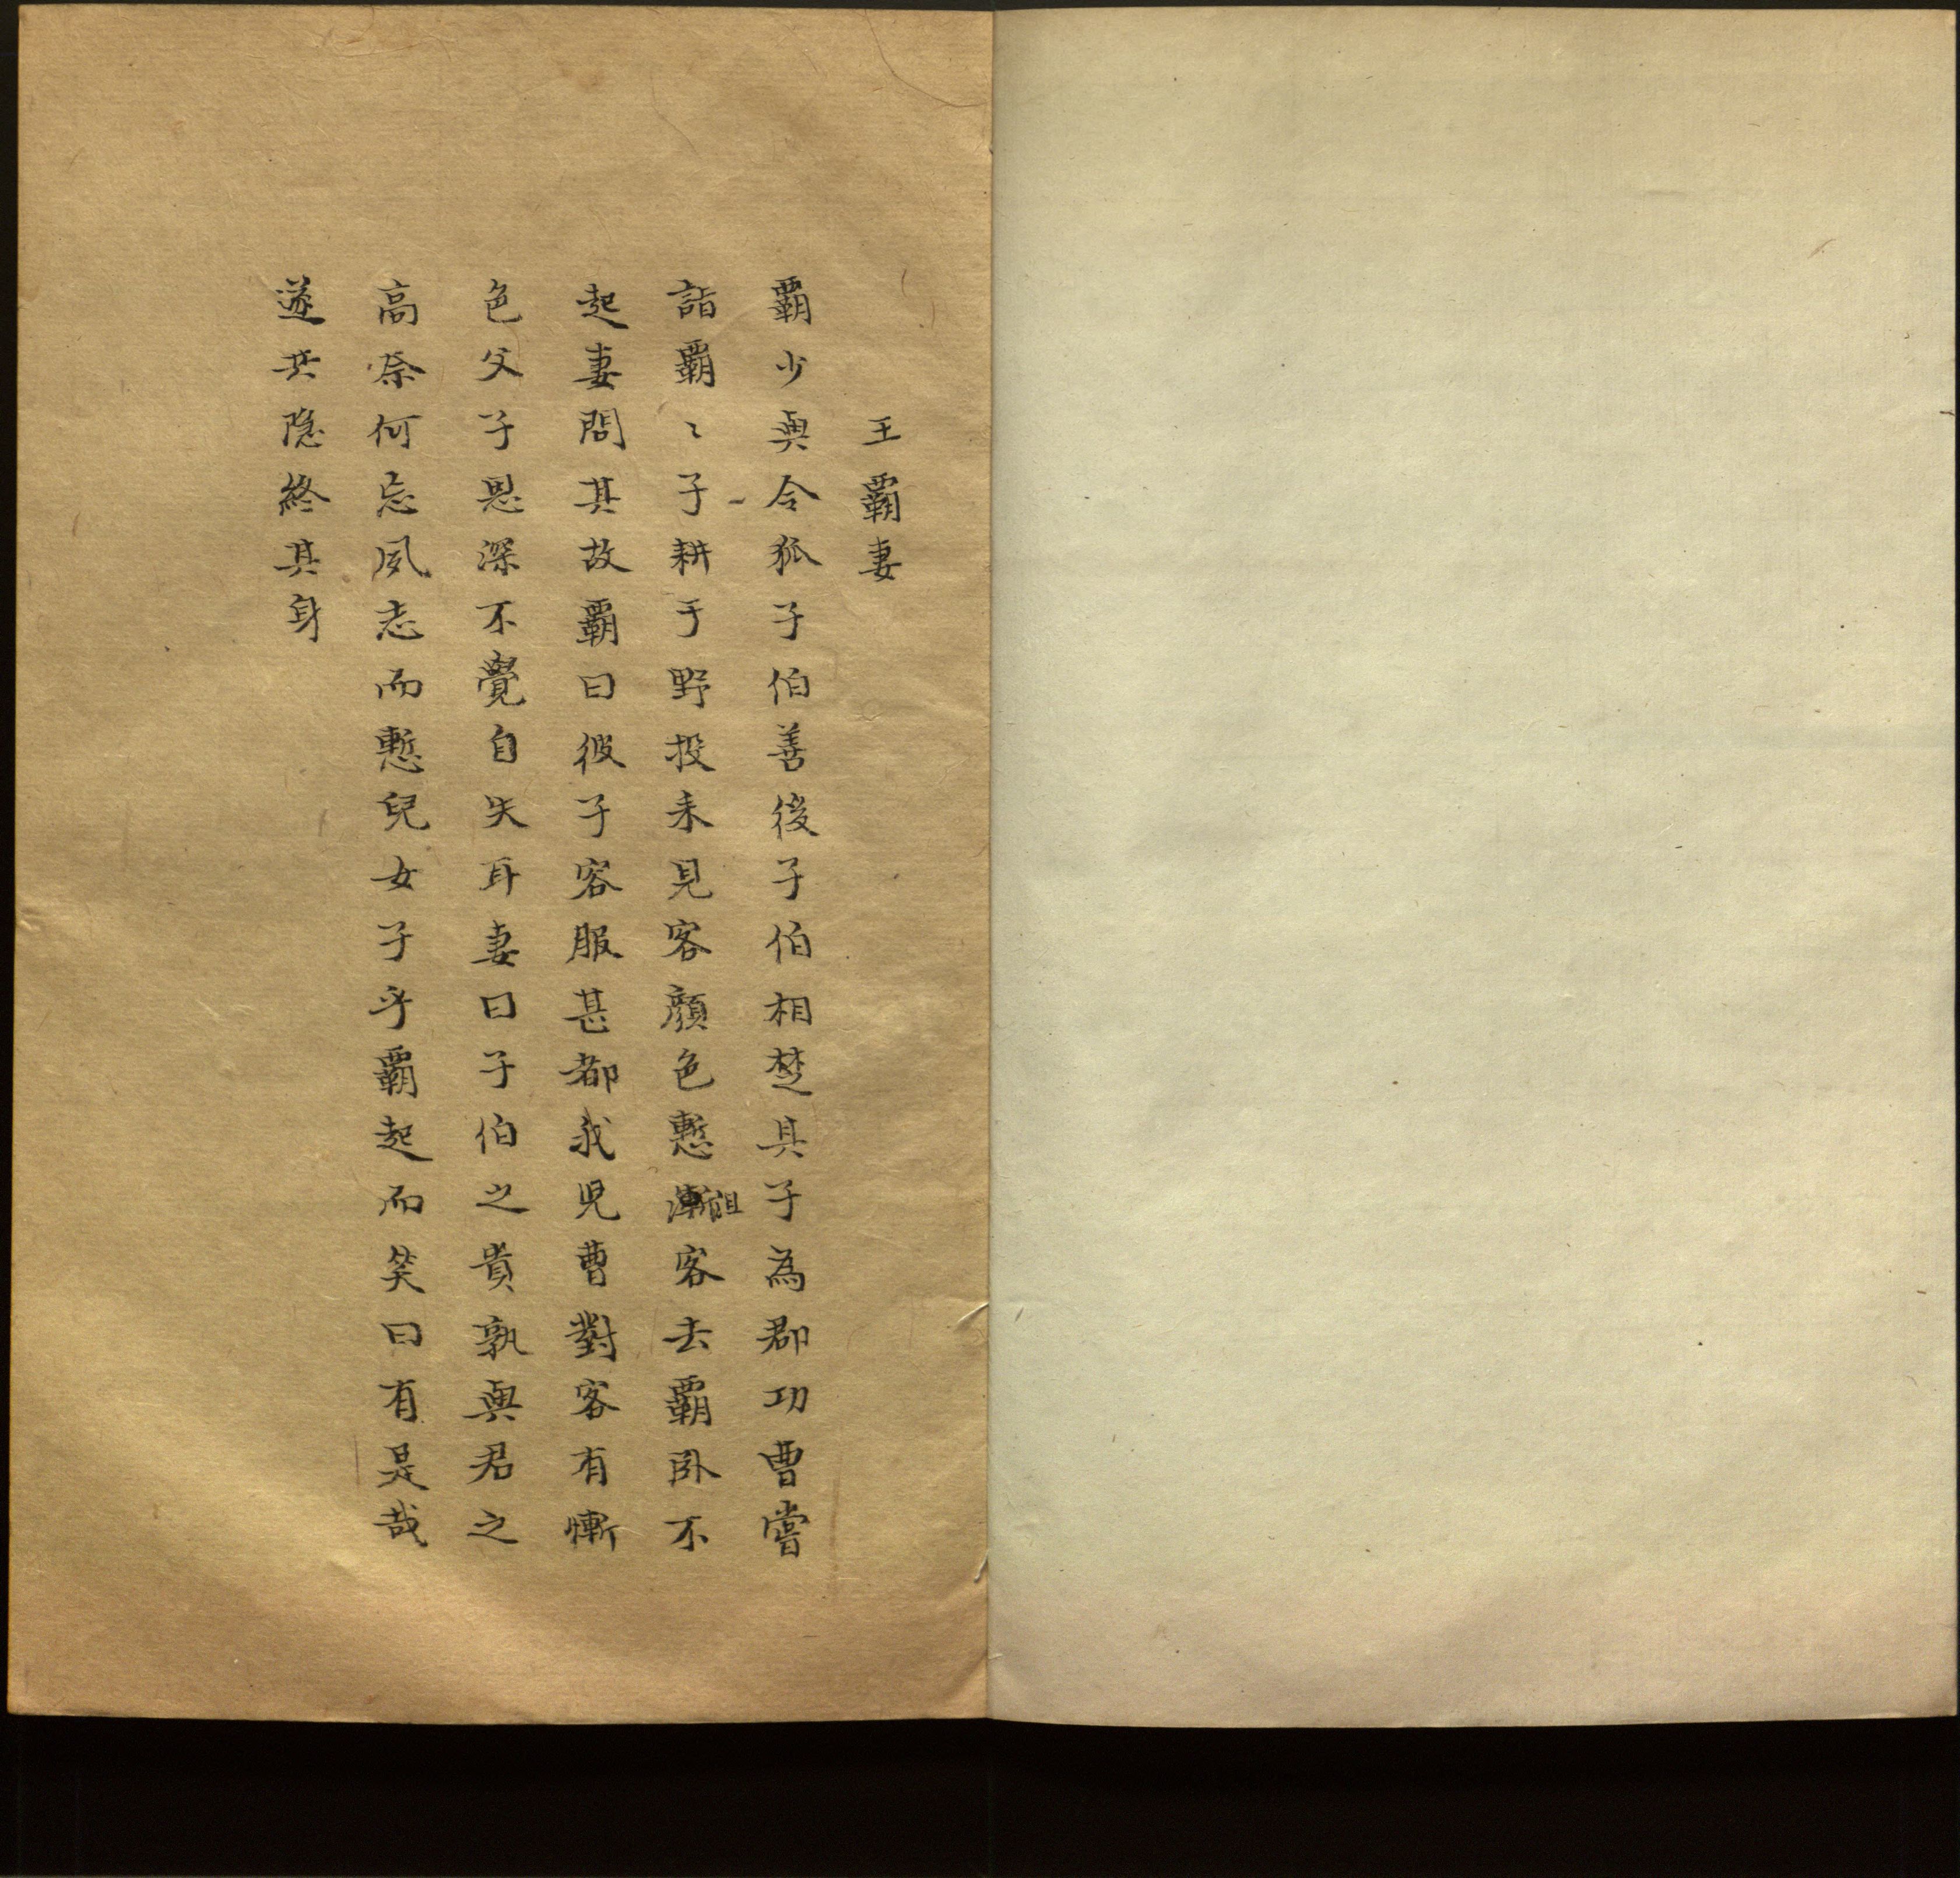 王覇妻
覇少與令狐子伯善後子伯相楚具子為郡功曹嘗
詣覇〻子耕于野投耒見客顔色慙沮客去覇臥不
起妻問其故覇曰彼子容服甚都我児曹對客有慚
色父子恩深不覺自失耳妻曰子伯之貴孰與君之
高奈何忘夙志而慙兒女子乎覇起而笑曰有是哉
遂共隐終其身